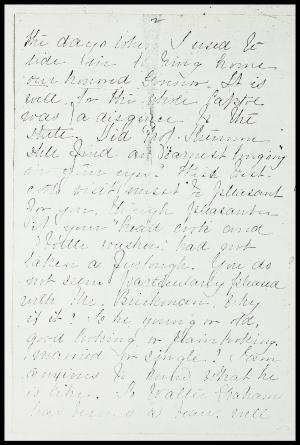 2
the days when I used to
ride in to bring home
our honored Connor. It is
well, for the whole
was a disgrace to the
State. Did Prof.
still find an "earnest longing"
in your eyes? His
visit must be pleasant
for you, though pleasanter
if your "Head cook and
Bottle washer" had not
taken a furlough. You do
not seem particularly pleased
with Mr. Buckman. Why
is it? Is he young or old,
good looking or plain looking,
married or single? I am
anxious to know what he
is like. Is Wallie Graham